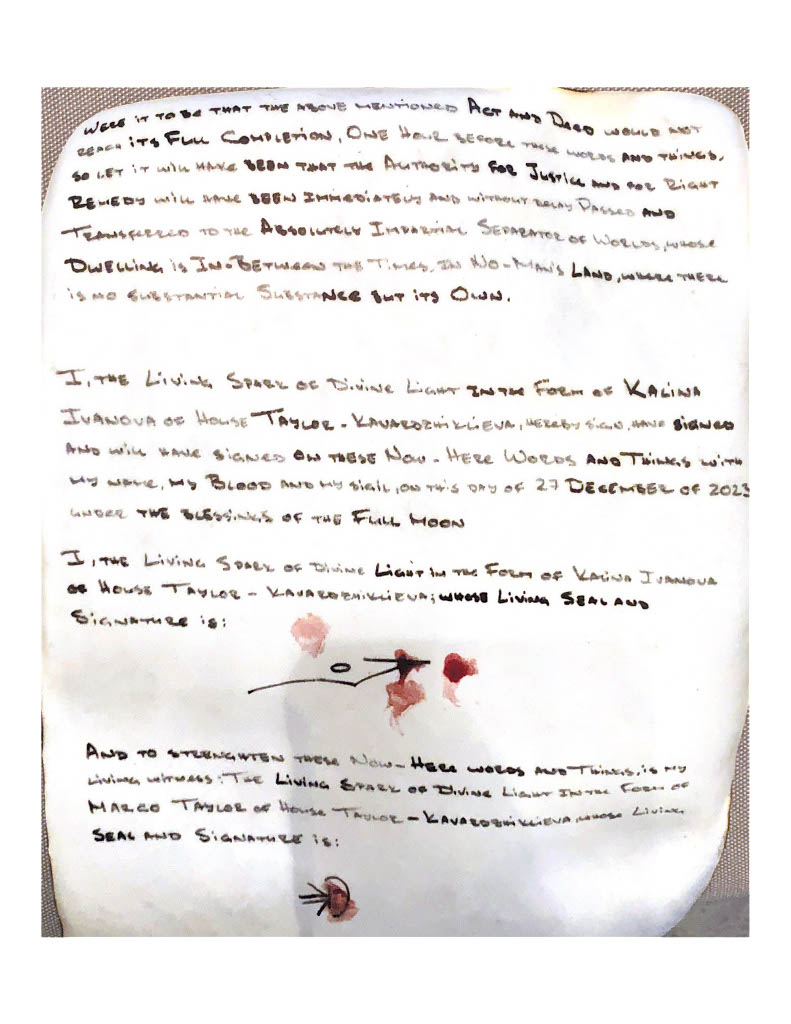 WERE IT TO BE THAT THE ABOVE MENTIONED ACT AND DEED WOULD NOT
REACH ITS FULL COMPLETION, ONE HOUR BEFORE THESE WORDS AND THINGS,
SO LET IT WILL HAVE BEEN THAT THE AUTHORITY FOR JUSTICE AND FOR RIGHT
REMEDY WILL HAVE BEEN IMMEDIATELY AND WITHOUT DELAY PASSED AND
TRANSFERRED TO THE ABSOLUTELY IMPARTIAL SEPARATOR OF WORLDS, WHOSE
DWELLING IS IN-BETWEEN THE TIMES, IN NO-MAN'S LAND, WHERE THERE
IS NO SUBSTANTIAL SUBSTANCE BUT ITS OWN.
I, THE LIVING SPARK OF DIVINE LIGHT IN THE FORM OF KALINA
IVANOVA OF HOUSE TAYLOR - KAVARDZHIKLIEVA, HEREBY SIGN, HAVE SIGNED
AND WILL HAVE SIGNED ON THESE NOW - HERE WORDS AND THINGS WITH
MY NAME, MY BLOOD AND MY SIGIL, ON THIS DAY OF 27 DECEMBER OF 2023
UNDER THE BLESSINGS OF THE FULL MOON
I, THE LIVING SPARK OF DIVINE LIGHT IN THE FORM OF KALINA IVANOVA
OF HOUSE TAYLOR - KAVARDZHIKLIEVA; WHOSE LIVING SEAL AND
SIGNATURE IS:
AND TO STRENGHTEN THESE NOW - HERE WORDS AND THINGS, IS MY
LIVING WITNESS: THE LIVING SPARK OF DIVINE LIGHT IN THE FORM OF
MARCO TAYLOR OF HOUSE TAYLOR - KAVARDZHIKLIEVA, WHOSE LIVING
SEAL AND SIGNATURE IS: